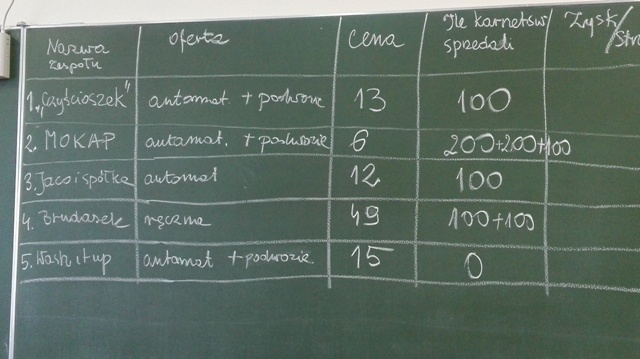 Nazwa zespołu oferta cena Ile karnetów sprzedali Zysk/
1. „Czyścioszek" automat + podwozie 13 100
2. MOKAP automat. + podwozie 6 200+200+100
3. Jaco i spółka automat 12 100
4. Brudasek ręczna 49 100+100
5. Wash it up automat + podwozie 15 0